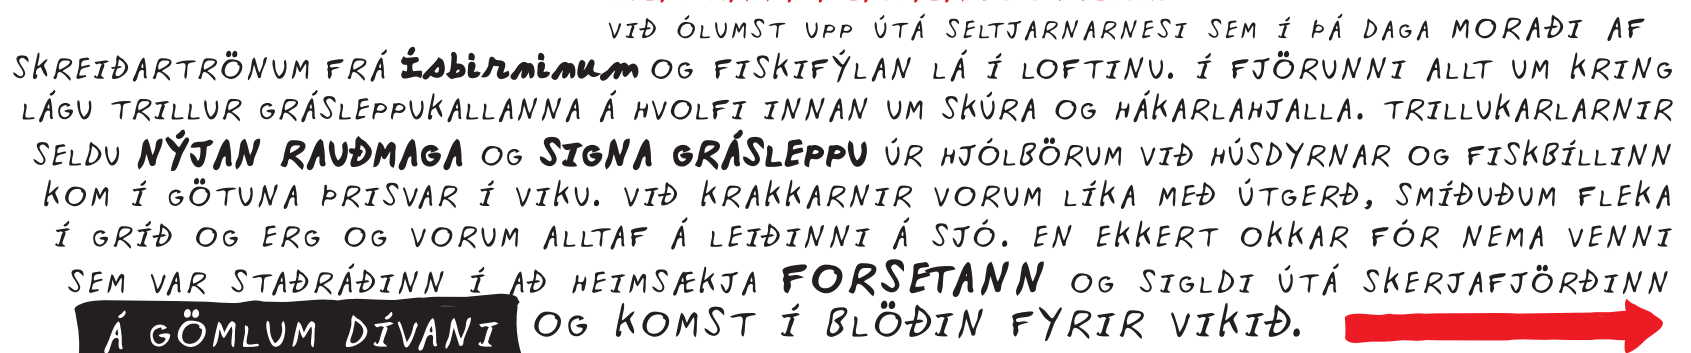 VIÐ ÓLUMST UPP ÚTÁ SELTJARNARNESI SEM Í ÞÁ DAGA MORAÐI AF
SKREIÐARTRÖNUM FRÁ Ísbirninum OG FISKIFÝLAN LÁ Í LOFTINU. Í FJÖRUNNI ALLT UM KRING
LÁGU TRILLUR GRÁSLEPPUKALLANNA Á HVOLFI INNAN UM SKÚRA OG HÁKARLAHJALLA. TRILLUKARLARNIR
SELDU NÝJAN RAUÐMAGA OG SIGNA GRÁSLEPPU ÚR HJÓLBÖRUM VIÐ HÚSDYRNAR OG FISKBÍLLINN
KOM Í GÖTUNA ÞRISVAR Í VIKU. VIÐ KRAKKARNIR VORUM LÍKA MEÐ ÚTGERÐ, SMÍÐUÐUM FLEKA
Í GRÍÐ OG ERG OG VORUM ALLTAF Á LEIÐINNI Á SJÓ. EN EKKERT OKKAR FÓR NEMA VENNI
SEM VAR STAÐRÁÐINN Í AÐ HEIMSÆKJA FORSETANN OG SIGLDI ÚTÁ SKERJAFJÖRÐINN
Á GÖMLUM DÍVANI OG KOMST Í BLÖÐIN FYRIR VIKIÐ.